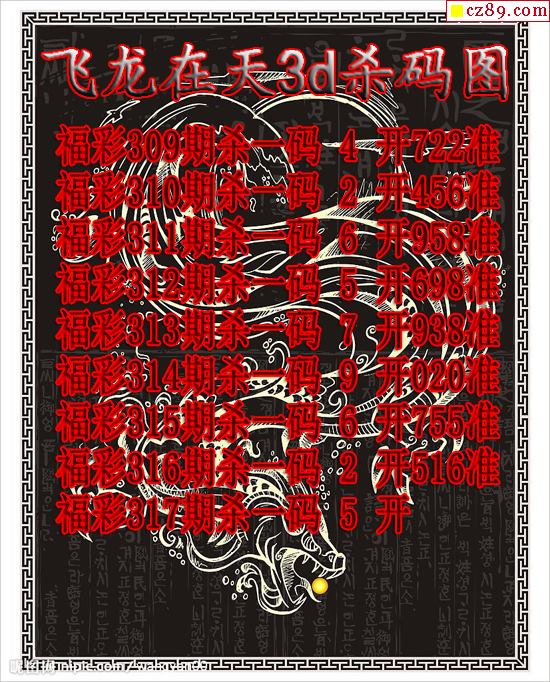 cz89.com
飞龙在天3d杀码图
福彩309期杀一码 4 开722准
福彩310期杀一码 2 开456准
福彩311期杀一码 6 开958准
福彩312期杀一码 5 开698准
福彩313期杀一码 7 开938准
福彩314期杀一码 9 开020准
福彩315期杀一码 6 开755准
福彩316期杀一码 2 开516准
福彩317期杀一码 5 开